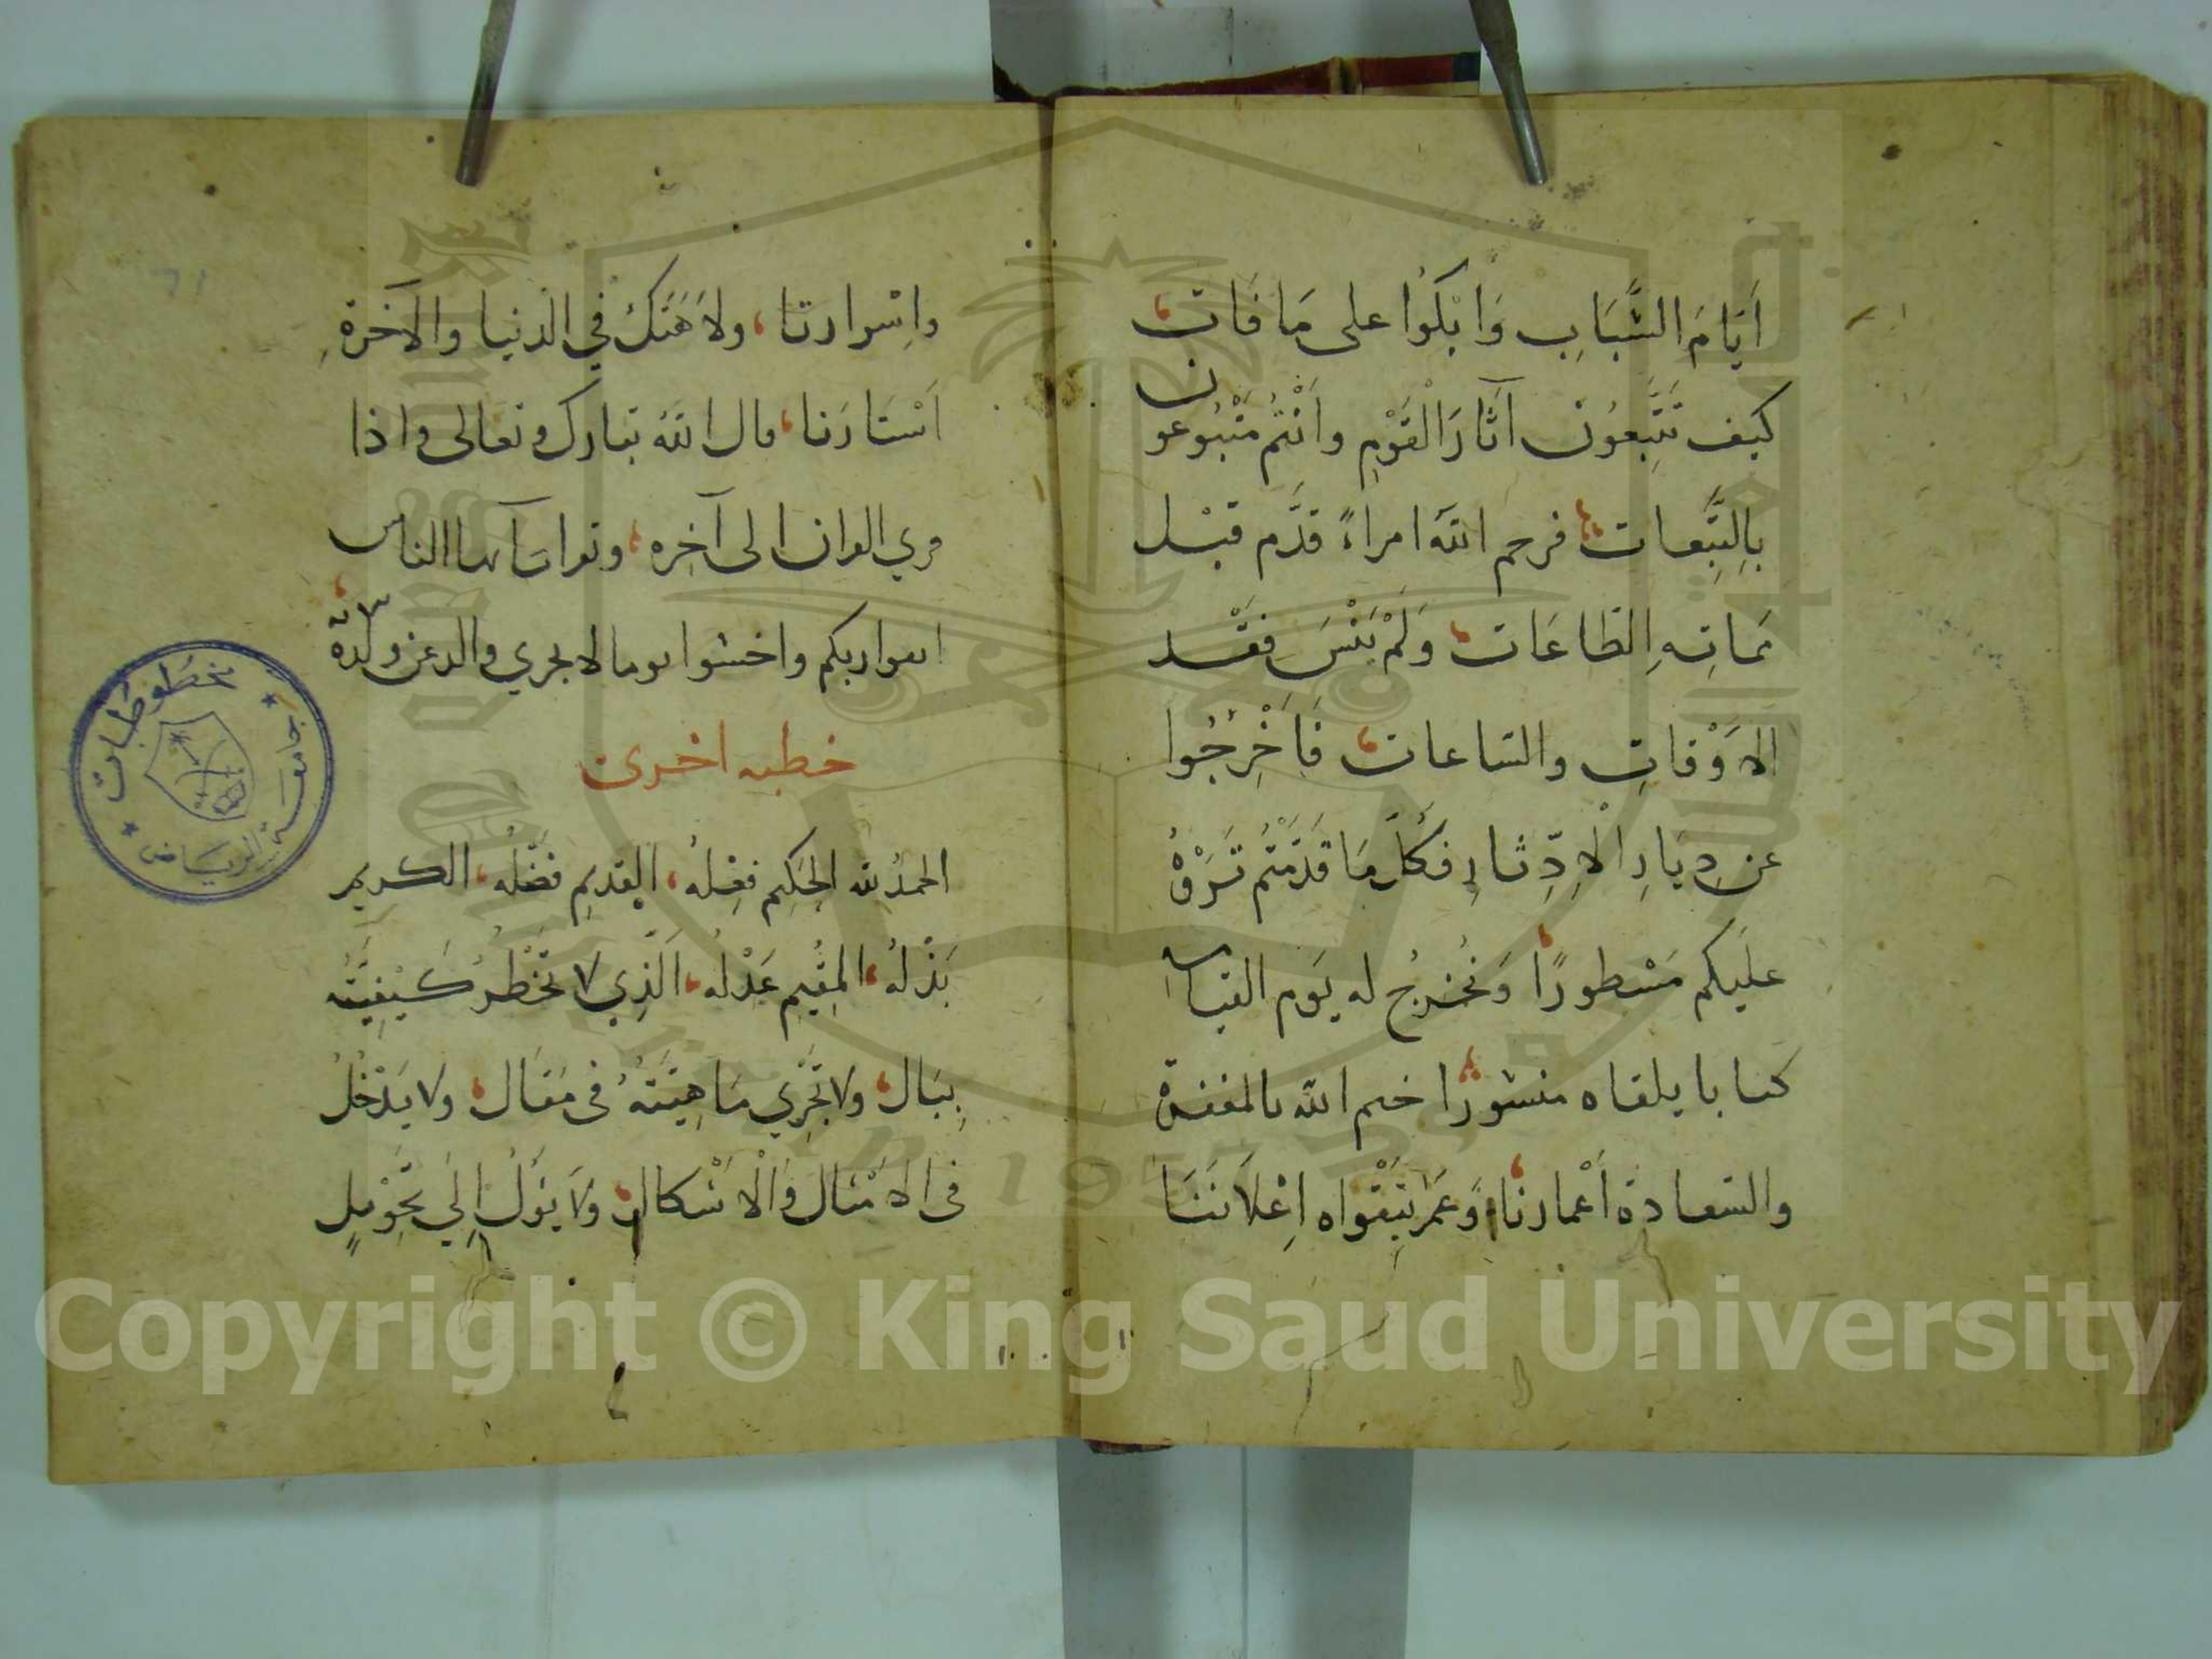 اَيَّامَ الشَّبَابِ وَابْكُوا على مَا فَات،
كيف تَتَّبِعُونَ آثارَ الْقَوْمِ وانْتُم مَتْبُوعون
بِالتَّبِعات، فرحم الله امراءً قدَّم قبْل
مماتِهِ الطاعَات، وَلَمْ يَنْسَ فقْد
الاَوْقاتِ والساعات، فَاَخْرِجُوا
عن دِيَارِ الْاِدِّثارِ فكُلّ مَا قَدَّمْتُم تَرَوْهُ
علَيكم مَسْطورًا، وَنُخرِجُ له يَوم القيامة
كتابا يلقاه منشورًا، ختم الله بالمغفرة
والسَّعادة أعْمارنا، وَعمَر بِتَقْواه اِعْلَانَنَا
واِسْرارنا، ولا هَتَك في الدّنيا والآخرةِ
اَسْتَارَنا، قال الله تبارك وتعالى واذا
قري القران الى آخِره، وتقرا يا ايها الناس
اتقوا ربكم واخشوا يوما لا يجزي والد عن ولده،
خطبه اخرى
الحمدُ لله الحَكِيم فِعْلهُ، القديمِ فَضْلُه، الكريم
بَذْلهُ، المُقِيمِ عَدْلهُ، الَّذِي لا تَخْطُرُ كَيْفِيَّتُه
بِبَال، ولا تَجْرِي مَاهِيَّتهُ في مَقال، ولا يَدْخُلُ
في الامْثال وَالْاَشْكال، ولَا يَؤُلُ اِلَى تَحْوِيلٍ
مخطوطات
جامعة الرياض
Copyright © King Saud University
1957